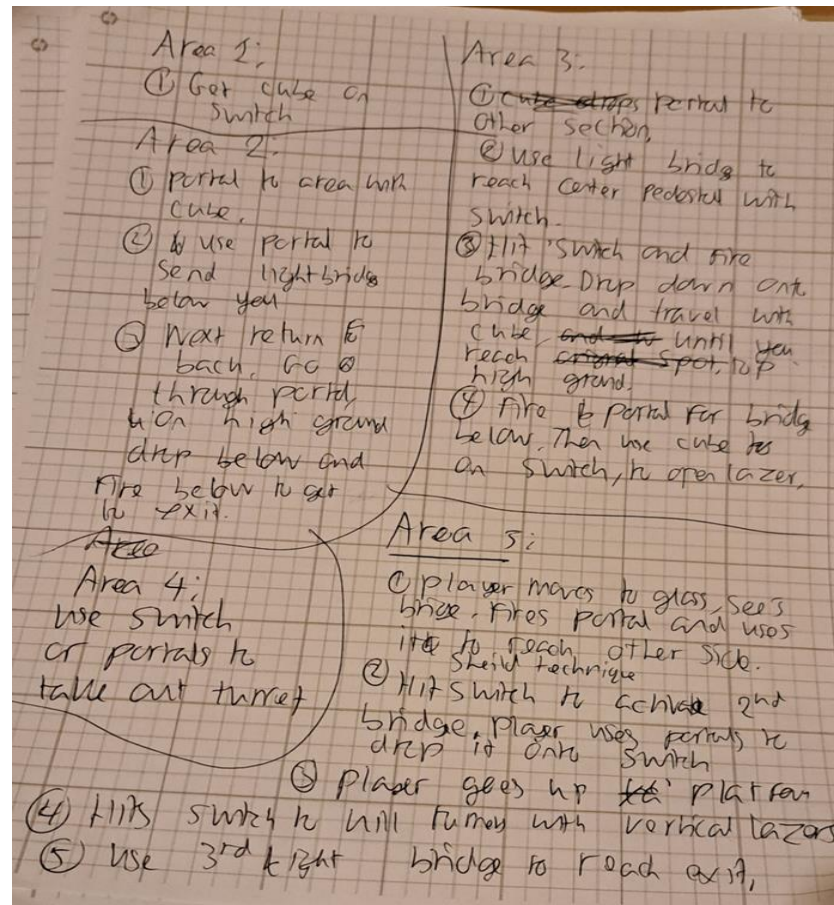 Area 1:
① Get cube on
switch
Area 2:
① portal to area with
cube.
② use portal to
send lightbridge
below you
③ Next return
back. Go
through portal,
on high ground
drop below and
fire below to get
to exit.
Area
Area 4:
use switch
or portals to
take out turret
Area 3:
① cube drops portal to
other section,
② use light bridge to
reach center pedestal with
switch.
③ Hit switch and fire
bridge. Drop down onto
bridge and travel with
cube until you
reach spot, top
high ground.
④ fire portal for bridge
below. Then use cube
on switch, to open lazer,
Area 5:
① player moves to glass, see's
brige. fires portal and uses
it to reach other side.
Sheild technique
② Hit switch to activate 2nd
bridge. player uses portals to
drop it onto switch
③ player goes up platform
④ Hits switch to kill turrets with vertical lazors
⑤ Use 3rd light bridge to reach exit,